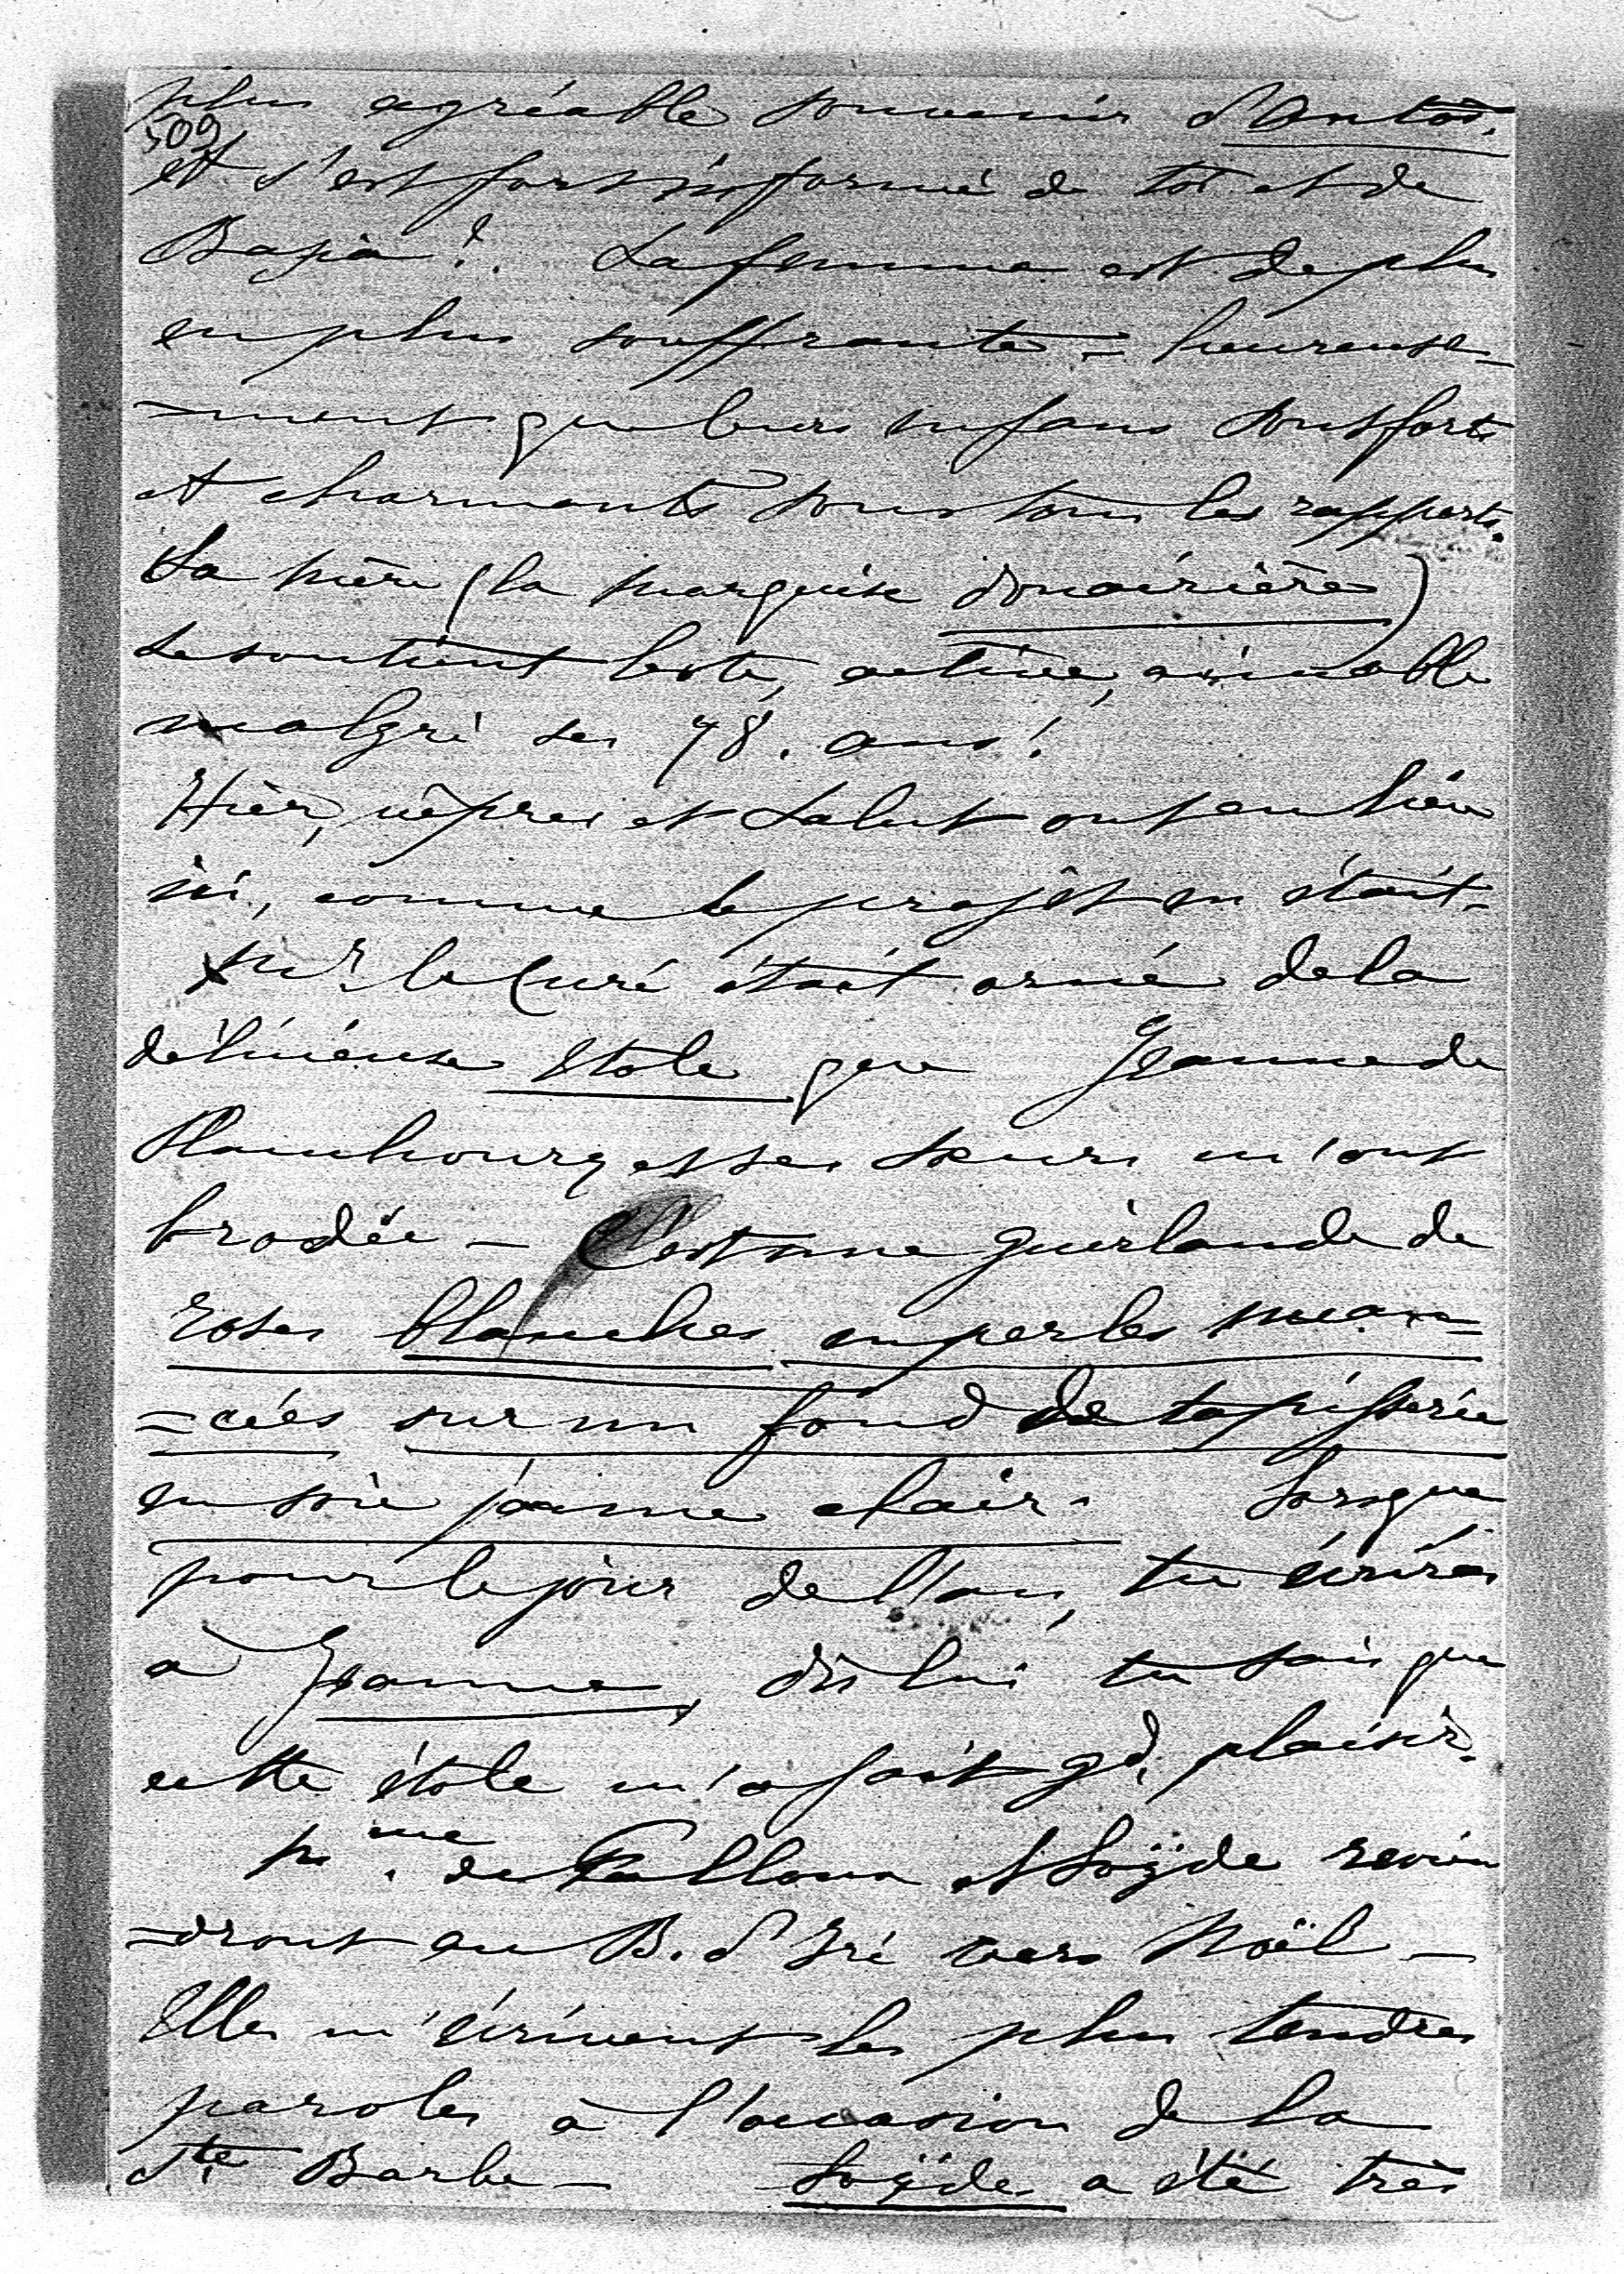 plus agréable souvenir d'Antos.
509
et s'est fort informé de toi et de
La femme est de plus
en plus souffrante - heureuse-
=ment que leurs enfans sont forts
et charmants sous tous les rapports.
Sa mère (la marquise douairière)
se soutient leste, active, aimable
malgré ses 78. ans!
Hier, vêpres et Salut ont eu lieu
ici, comme le projet en était -
Mr le Curé était orné de la
délicieuse étole que Jeanne de
et ses sœurs m'ont
brodée - C'est une guirlande de
roses blanches en perles nuan=
=cées sur un fond de tapisserie
en soie jaune clair. Lorsque
pour le jour de l'an, tu écriras
à Jeanne, dis lui tu sais que
cette étole m'a fait gd. plaisir.
Mme de Falloux et Loÿde revien
=dront au B. d'Iré vers Noël -
Elles m'écrivent les plus tendres
paroles à l'occasion de la
Ste Barbe - Loÿde a été très